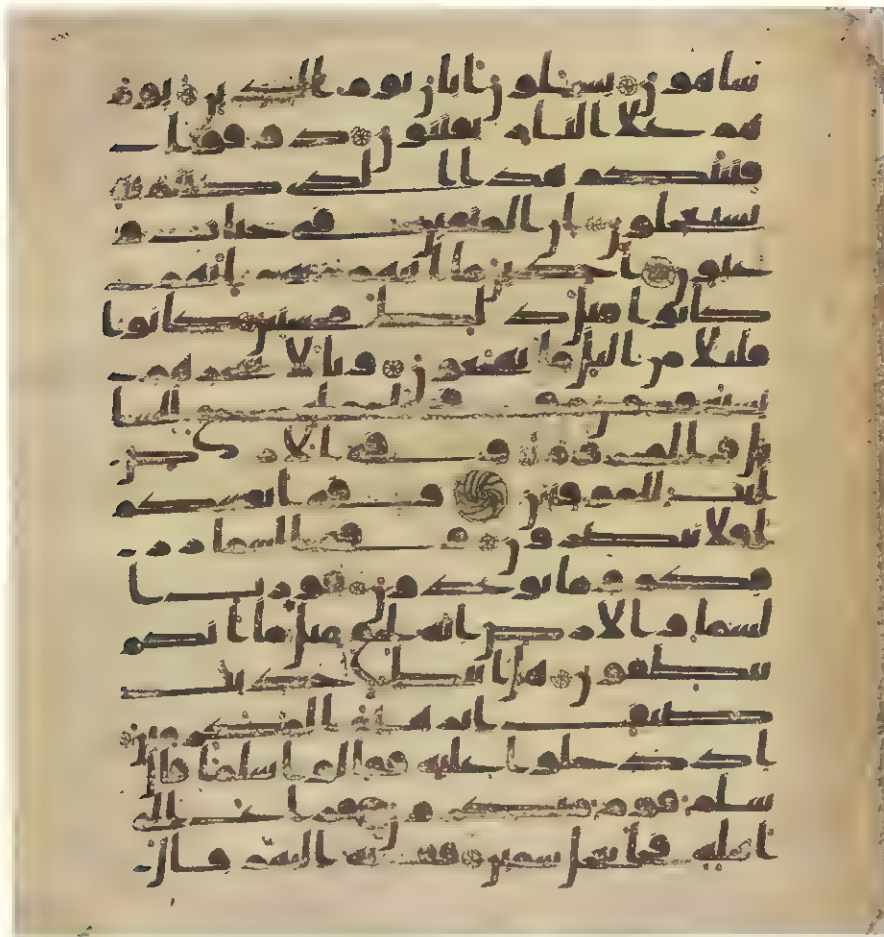 ساهون يسلون ايان يوم الدين يوم
هم على النار يفتنون ذوقوا
فتنتكم هذا الذي كنتم به
تستعجلون ان المتقين في جنت و
عيون اخذين ما اتيهم ربهم انهم
كانوا قبل ذلك محسنين كانوا
قليلا من اليل ما يهجعون وبالاسحار هم
يستغفرون وفي امولهم حق للسا
ئل والمحروم وفي الارض
ايت للموقنين وفي انفسكم
افلا تبصرون وفي السما رز
قكم وما توعدون فورب ا
لسما والارض انه لحق مثل ما انكم
تنطقون هل اتيك حديث
ضيف ابرهيم المكرمين
اذ دخلوا عليه فقالوا سلما قال
سلم قوم منكرون فراغ الى
اهله فجا بعجل سمين فقربه اليهم قال